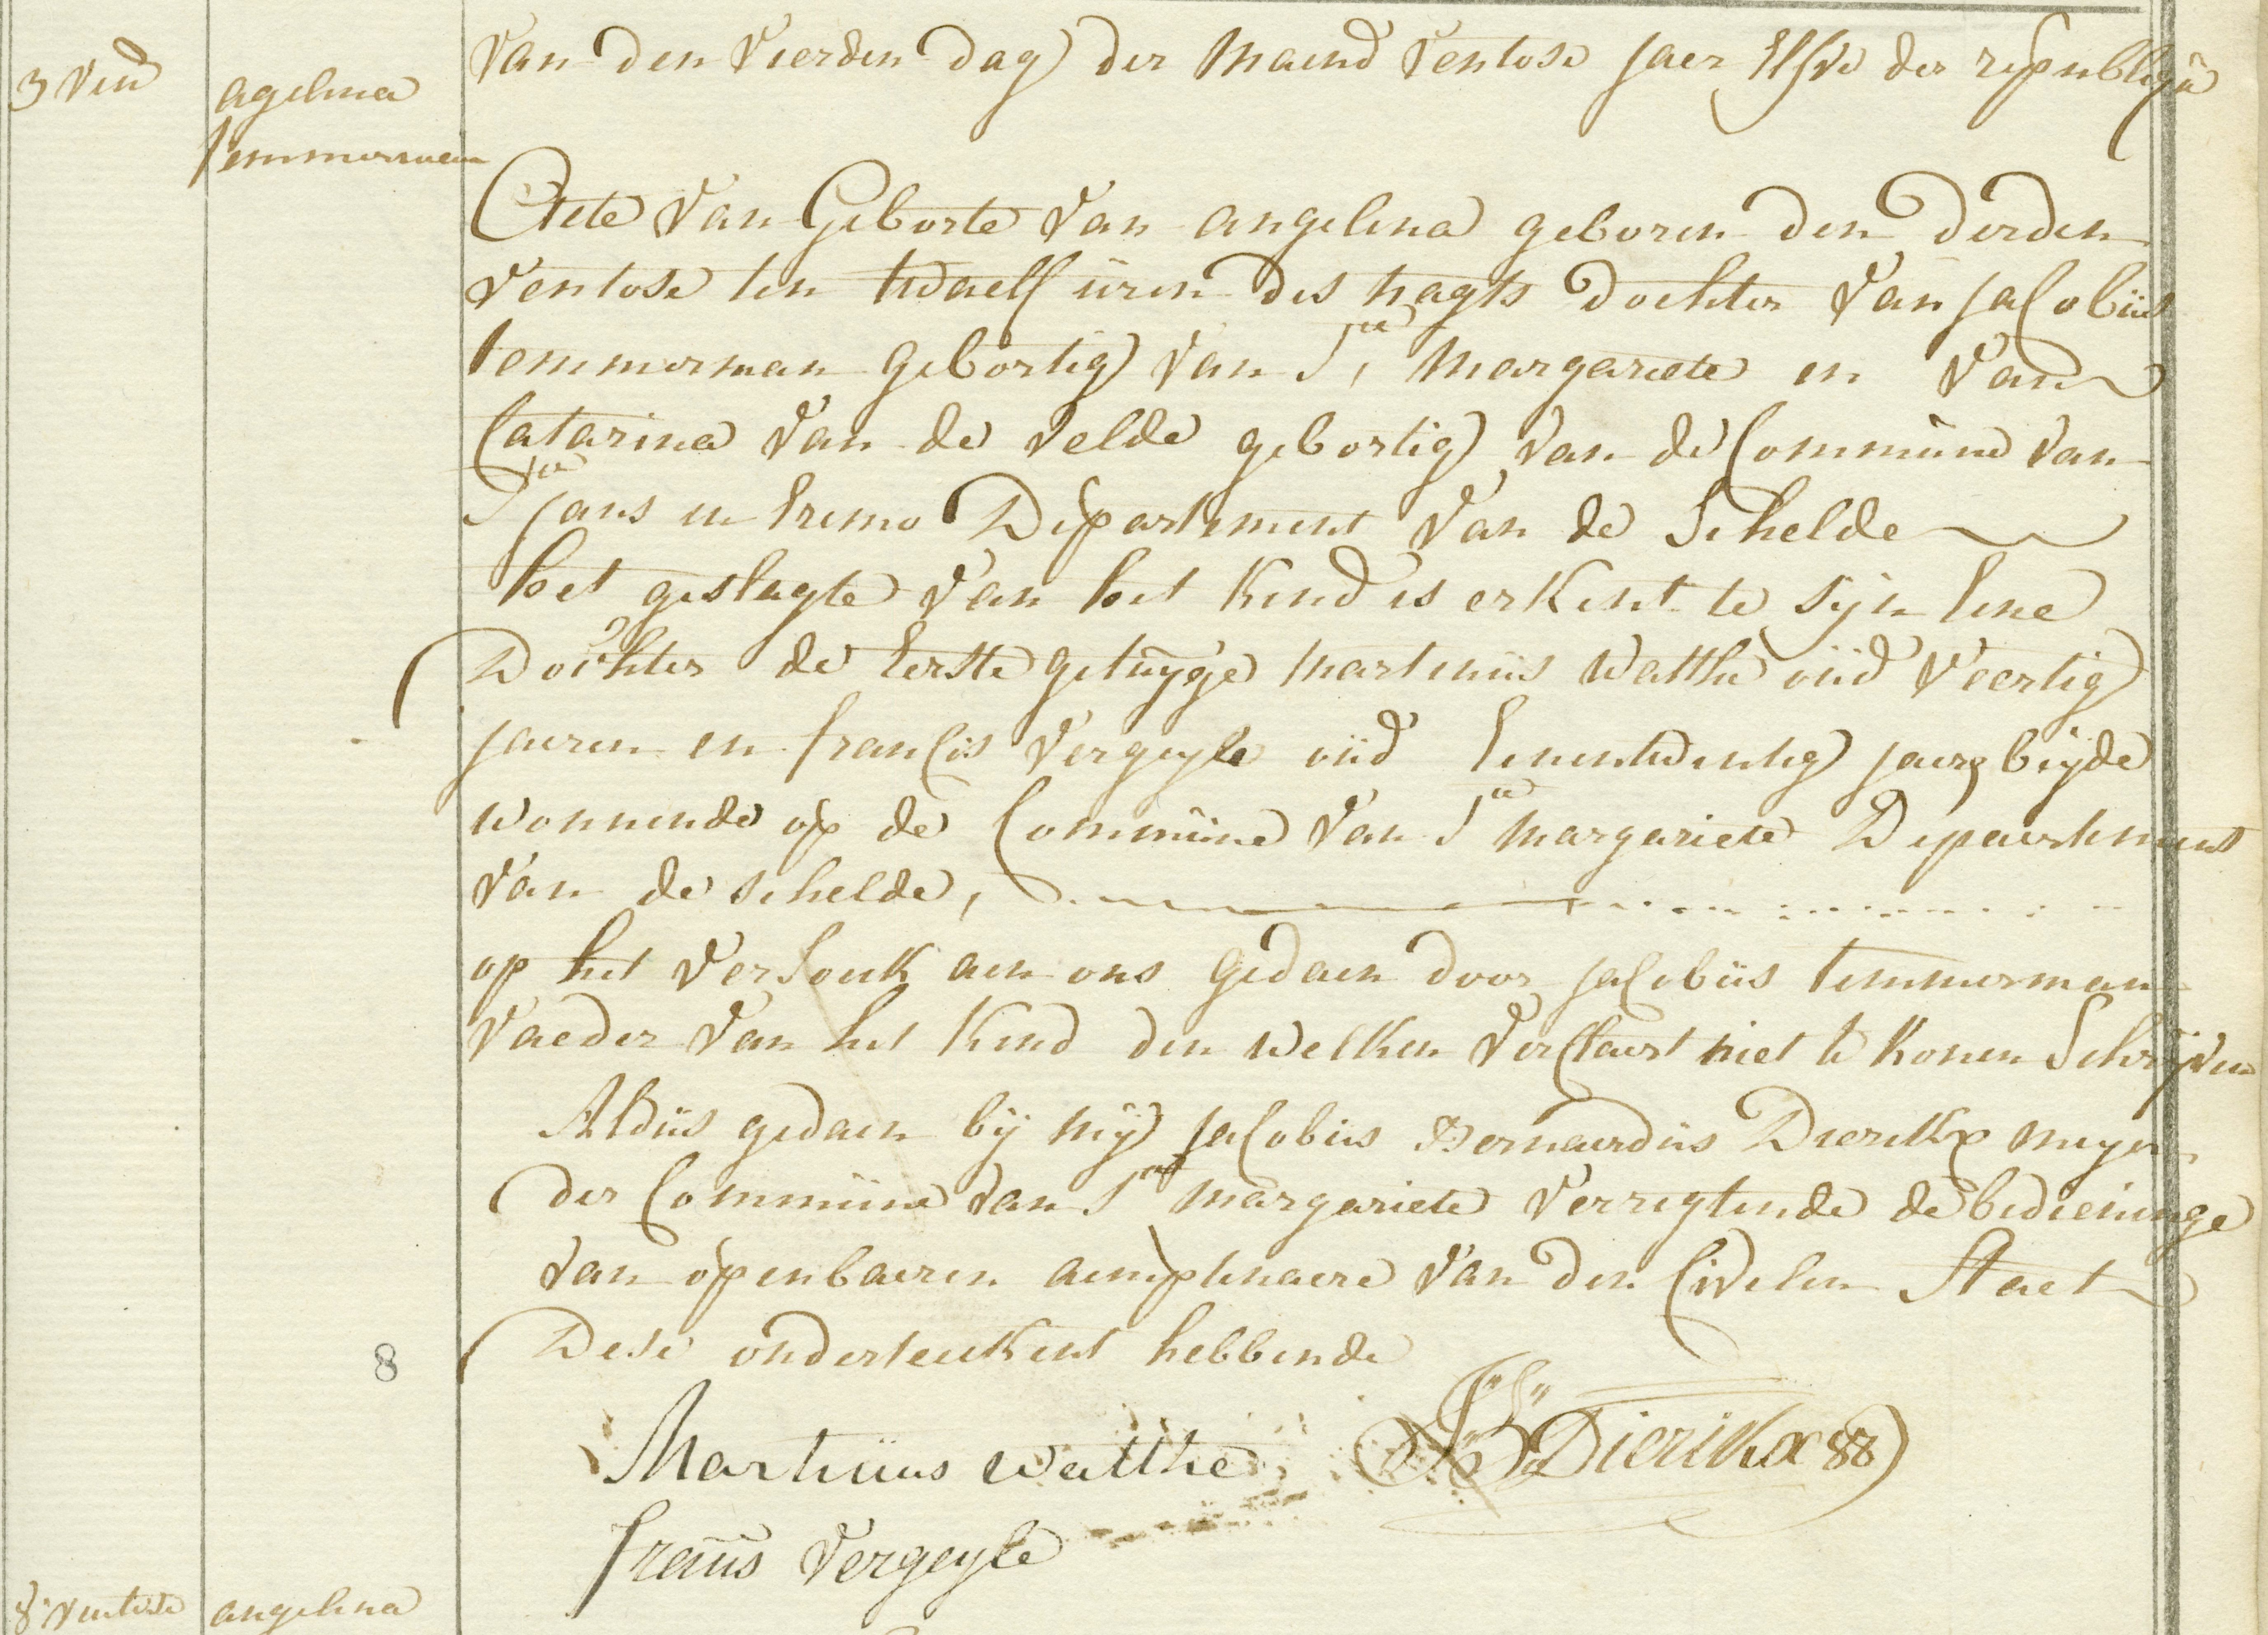 Van den Vierden dag der Maend Ventose jaer Elfve der republique
3 Ven
agelina
temmerman
Acte Van Geborte Van angelina geboren den derden
Ventose ten twaelf uren des nagts dochter Van jacobus
temmerman gebortig Van Ste Margariete en Van
Catarina Van de Velde gebortig Van de Commune Van
Ste jans in Eremo Departement Van de Schelde
het geslagte Van het kind is erkent te sijn Eene
Dochter de Eerste getuyge Martinus Watthe oud Veertig
jaeren en francis Vergeyle oud Eenentwentig jaer beyde
wonnende op de Commune Van Ste Margariete Departement
Van de Schelde,
op het Versouk aen ons gedaen door jacobus temmerman
Vaeder Van het Kind den welken Verclaert niet te konen Schrijven
Aldus gedaen bij mij jacobus Bernaerdus Dierikx meyer
der Commune Van Ste Margariete Verrigtende de bedieninge
Van openbaeren amptenaere Van den Civielen Staet
Dese onderteekent hebbende
8
Martinus watthe
JB Dierikx
francis Vergeyle
8 Ventose
angelina